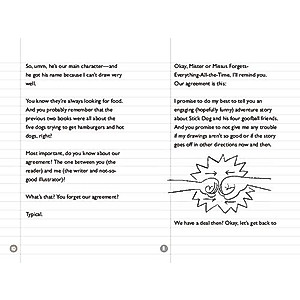 So, umm, he's our main character—and
he got his name because I can't draw very
well.
You know they're always looking for food.
And you probably remember that the
previous two books were all about the
five dogs trying to get hamburgers and hot
dogs, right?
Most important, do you know about our
agreement? The one between you (the
reader) and me (the writer and not-so-
good illustrator)?
What's that? You forget our agreement?
Typical.
Okay, Mister or Missus Forgets-
Everything-All-the-Time, I'll remind you.
Our agreement is this:
I promise to do my best to tell you an
engaging (hopefully funny) adventure story
about Stick Dog and his four goofball friends.
And you promise to not give me any trouble
if my drawings aren't so good or if the story
goes off in other directions now and then.
We have a deal then? Okay, let's get back to